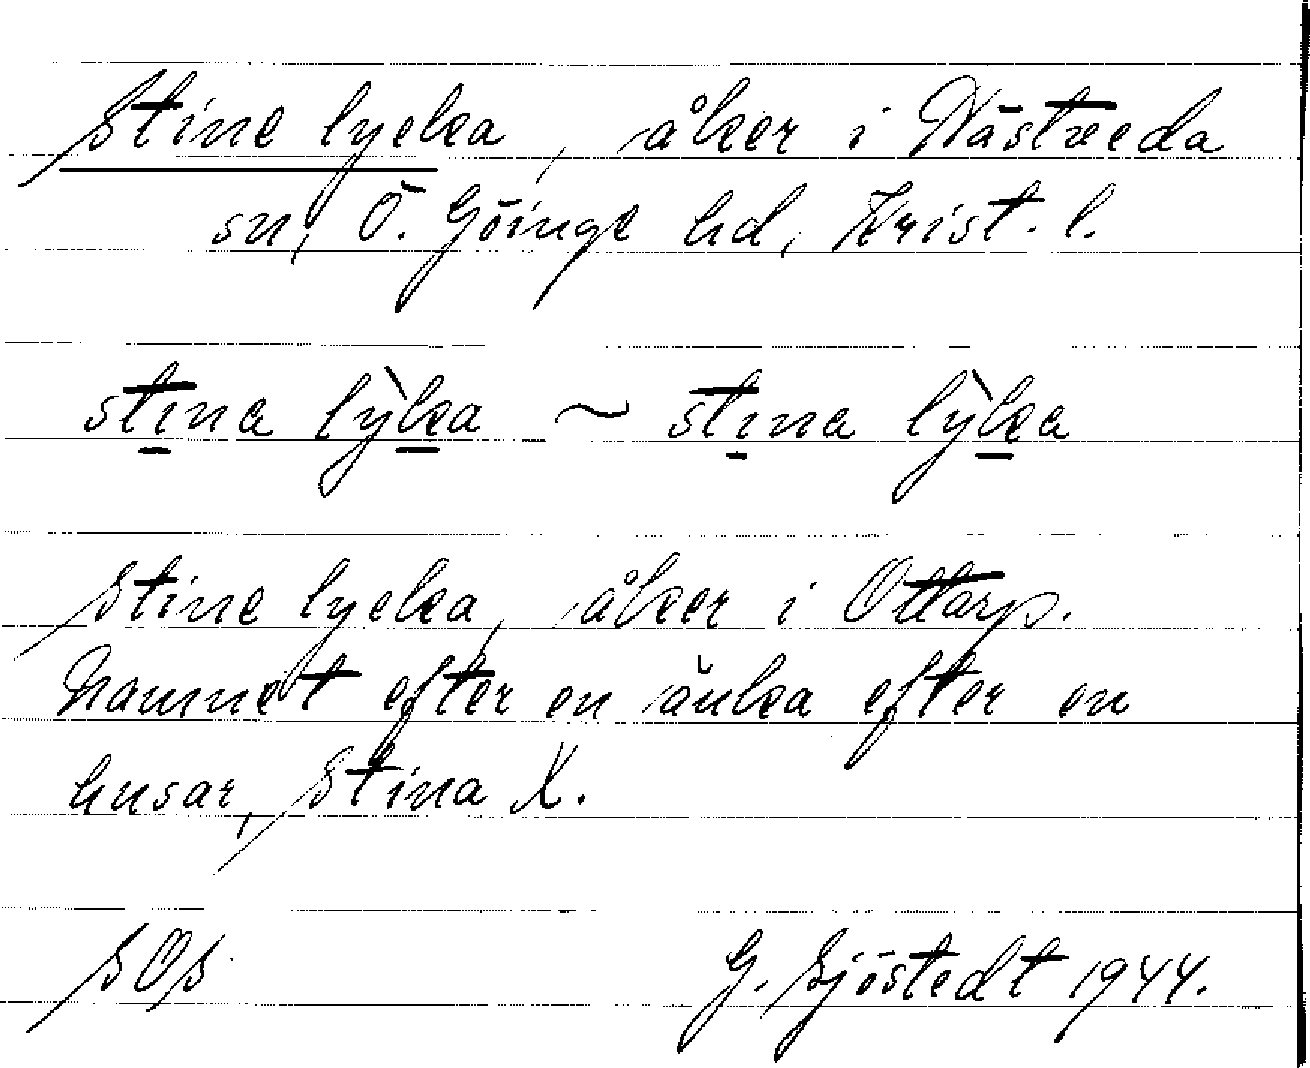 Stine lycka, åker i Västraeda
sn, Ö. Göinge hd, Krist. l.
stina lỳka ~ stina lỳka
Stine lycka, åker i Ottarp.
Namnet efter en änka efter en
husar, Stina X.
SOS
G. Sjöstedt 1944.